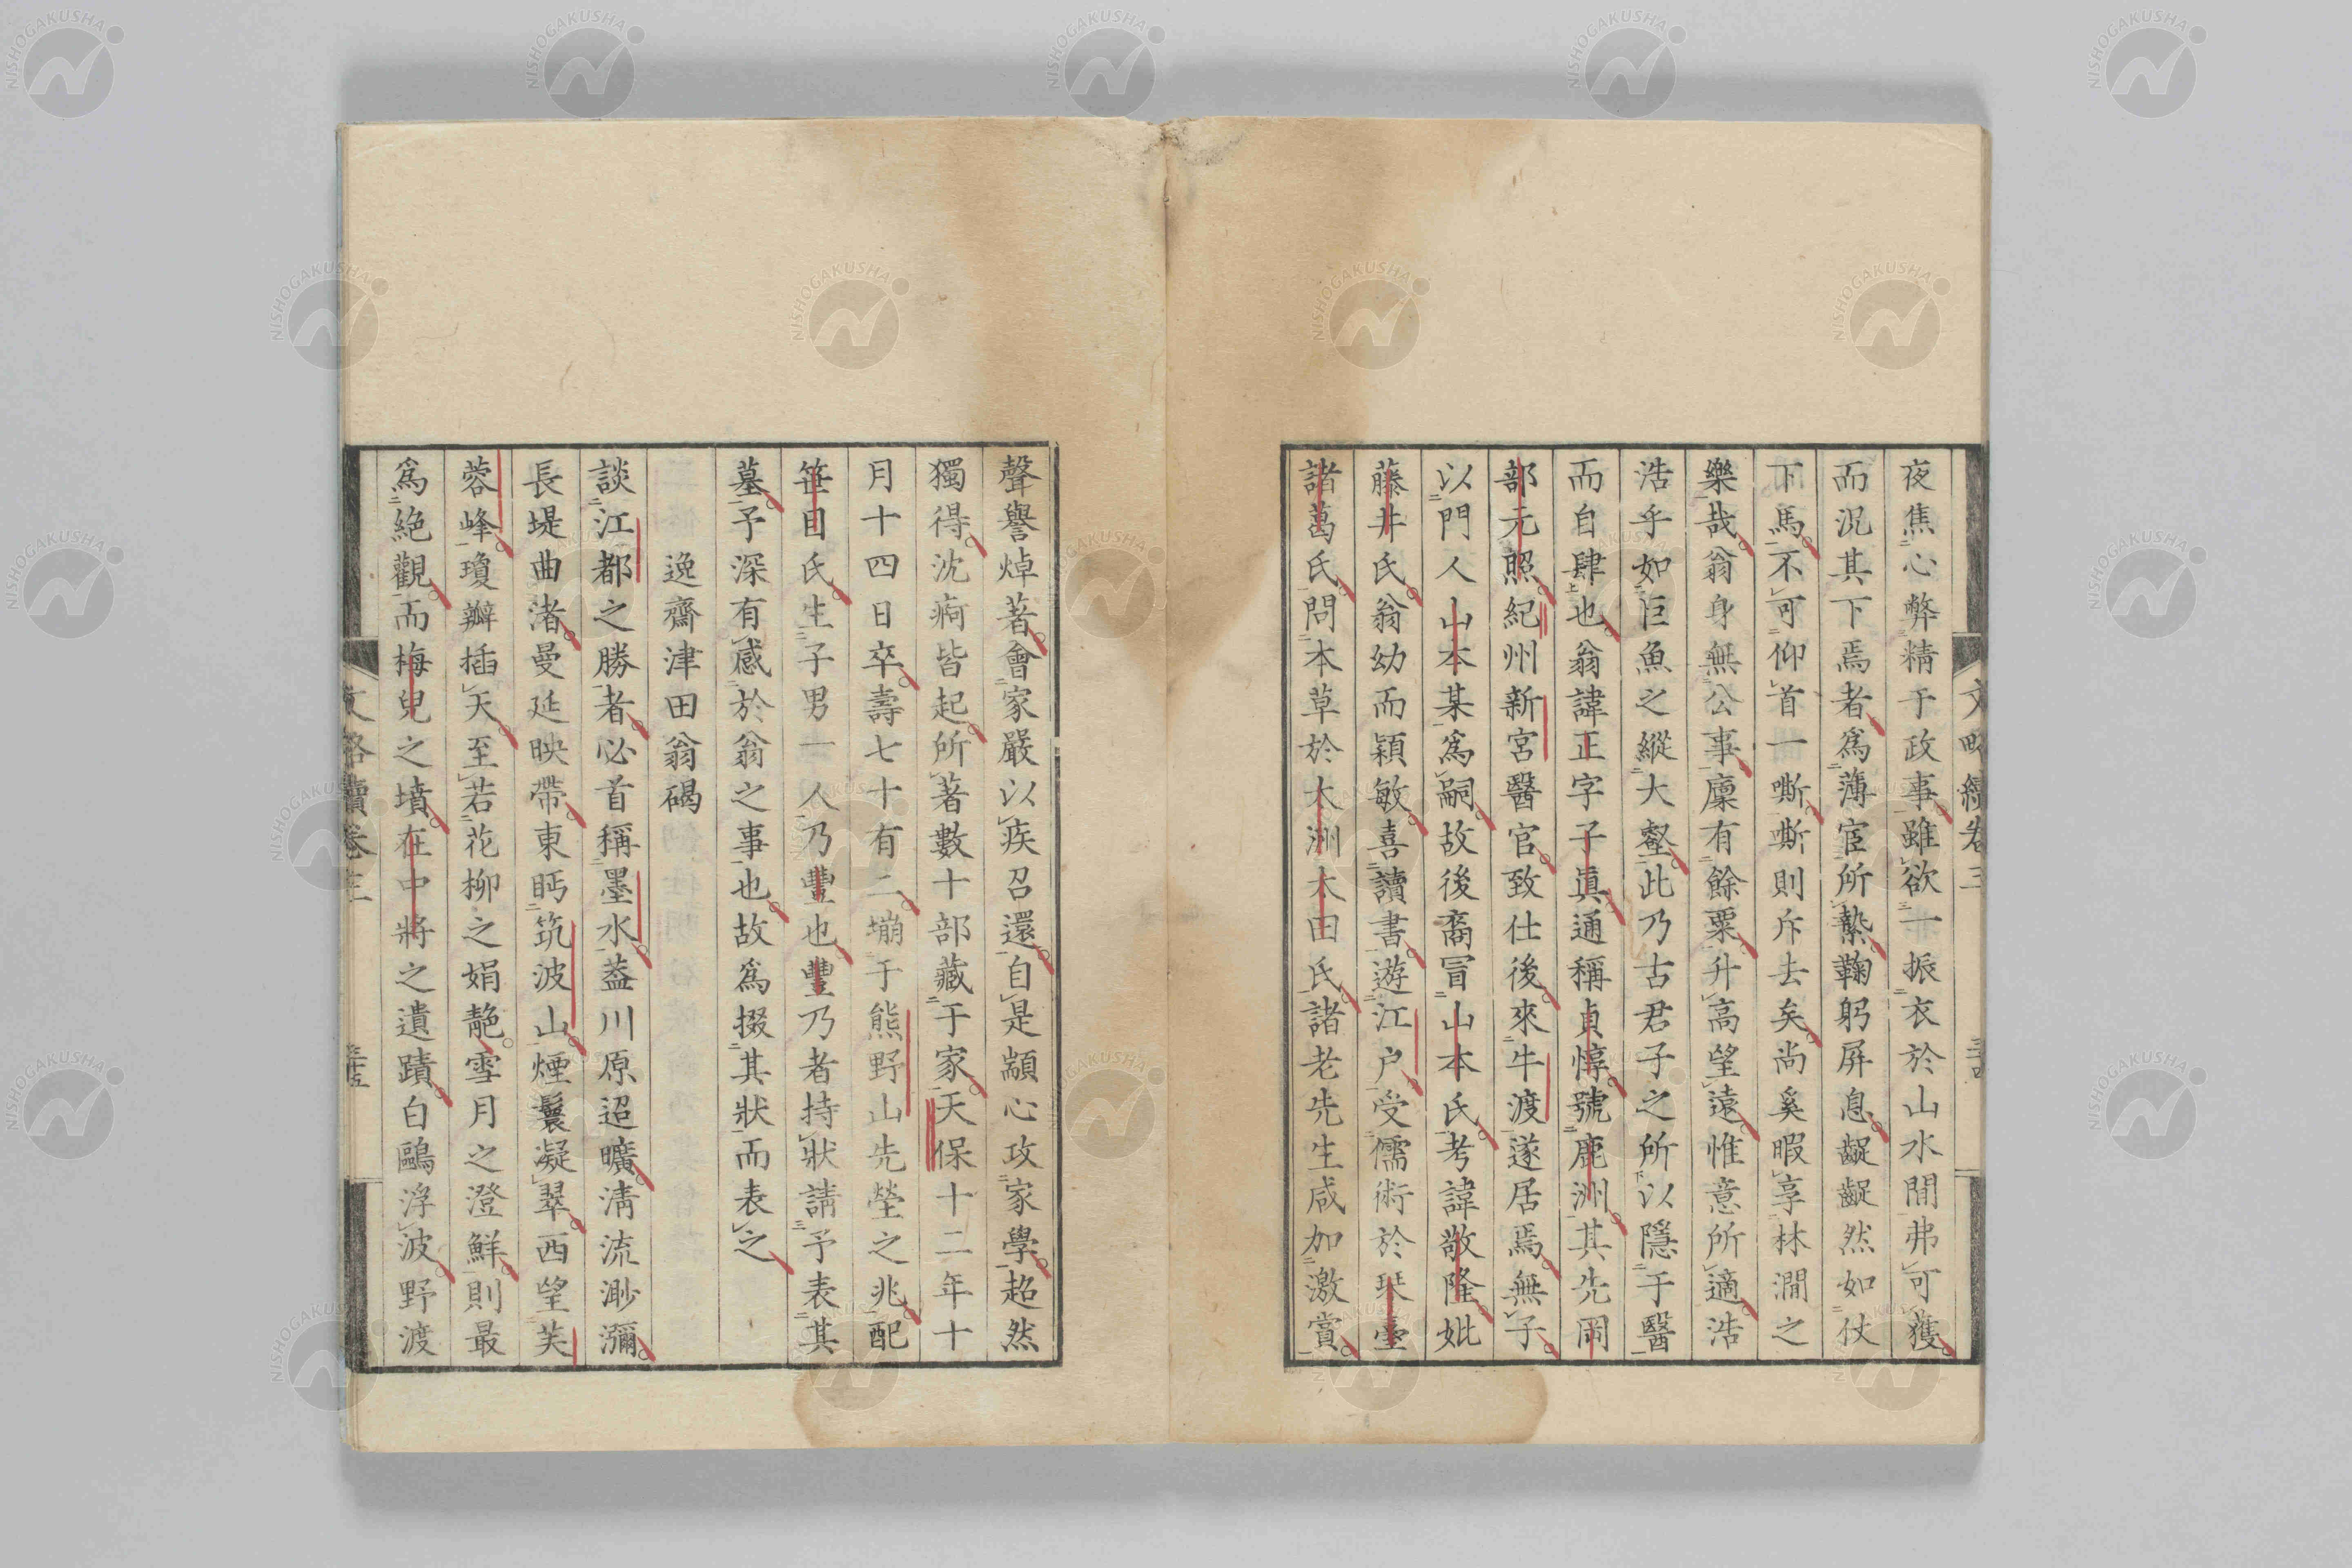 夜焦心弊精于政事雖欲一振衣於山水間弗可獲
而況其下焉者爲薄宦所縶鞠躬屏息齪齪然如仗
下馬不可仰首一嘶嘶則斥去矣尚奚暇享林澗之
樂哉翁身無公事廩有餘粟升高望遠惟意所適浩
浩乎如巨魚之縱大壑此乃古君子之所以隱于醫
而自肆也翁諱正字子眞通稱貞惇號鹿洲其先岡
部元照紀州新宮醫官致仕後來牛渡遂居焉無子
以門人山本某爲嗣故後裔冒山本氏考諱敬隆妣
藤井氏翁幼而穎敏喜讀書遊江戸受儒術於琹臺
諸葛氏問本草於大洲太田氏諸老先生咸加激賞
聲譽焯著會家嚴以疾召還自是顓心攻家學超然
獨得沈痾皆起所著數十部藏于家天保十二年十
月十四日卒壽七十有二塴于熊野山先塋之兆配
笹目氏生子男一人乃豐也豐乃者持狀請予表其
墓予深有感於翁之事也故爲掇其狀而表之
逸齋津田翁碣
談江都之勝者必首稱墨水葢川原迢曠淸流渺瀰
長堤曲渚曼延映帶東眄筑波山煙鬟凝翠西望芙
蓉峰瓊瓣插天至若花柳之娟靘雪月之澄鮮則最
爲絶觀而梅兒之墳在中將之遺蹟白鷗浮波野渡
文略續卷三
三十四
文略續卷三
三十五
NISHOGAKUSHA